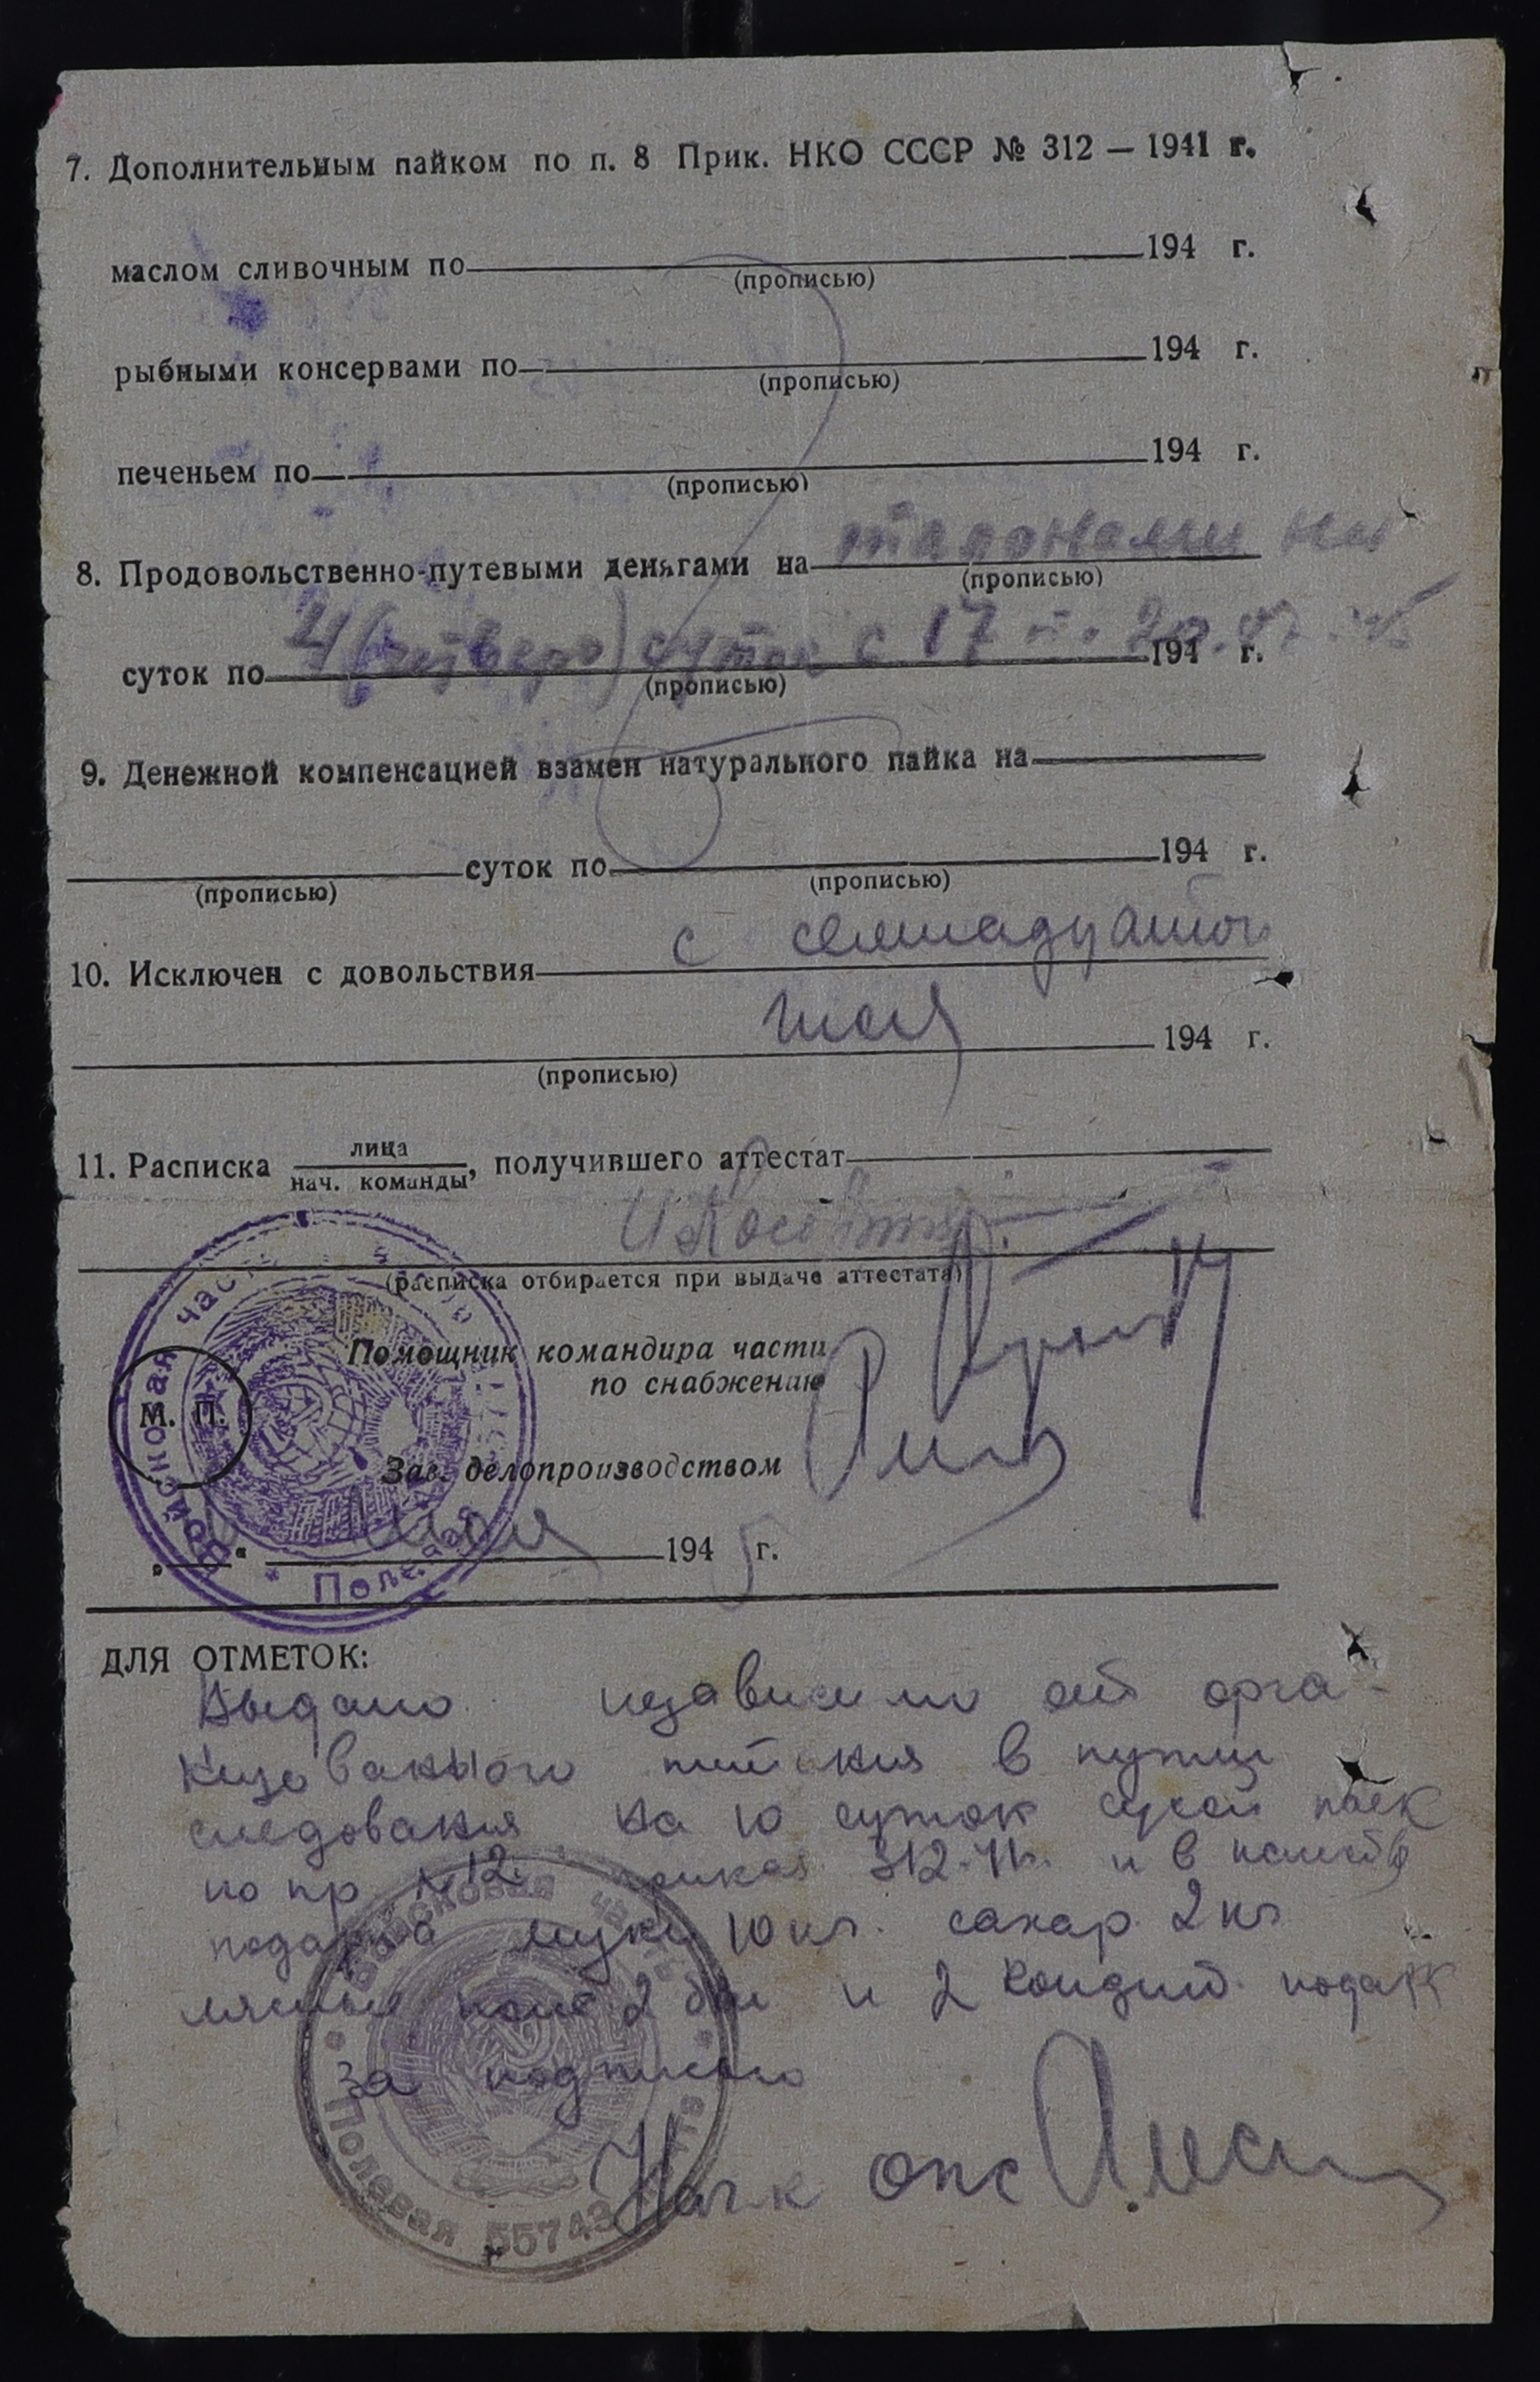 7. Дополнительным пайком по п. 8 Прик. НКО СССР № 312 — 1941 г.
маслом сливочным по 194 г.
(прописью)
рыбными консервами по 194 г.
(прописью)
печеньем по 194 г.
(прописью)
8. Продовольственно-путевыми деньгами на талонами на
(прописью)
суток по 4 (четверо) суток с 17 по 20.07 194 г.
(прописью)
9. Денежной компенсацией взамен натурального пайка на
суток по 194 г.
(прописью) (прописью)
10. Исключен с довольствия с семнадцатого
июля 194 г.
(прописью)
11. Расписка лица
нач. команды, получившего аттестат
(расписка отбирается при выдаче аттестата)
Помощник командира части
по снабжению
М. П.
Зав. делопроизводством
июля 1945 г.
Войсковая часть
* Полевая
ДЛЯ ОТМЕТОК:
Выдано независимо от орга-
низованного питания в пути
следования на 10 суток сухой паек
по пр. №12 приказ 312-41г. и в качеств
подарка муки 10 кг. сахар 2 кг
мясные конс 2 бан и 2 кондит. подарк
за подписью
Нач-к опс
Войсковая часть
Полевая 55743